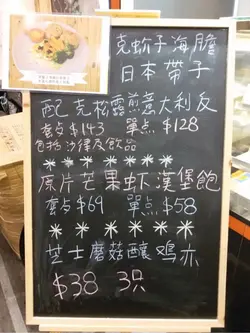 克蚧子海膽
日本帶子
配克松露煎意大利反
套点$143 單点$128
包括沙律及飲品
原片芒果虾漢堡飽
套点$69 單点$58
芝士磨菇釀鸡亦
$38 3只